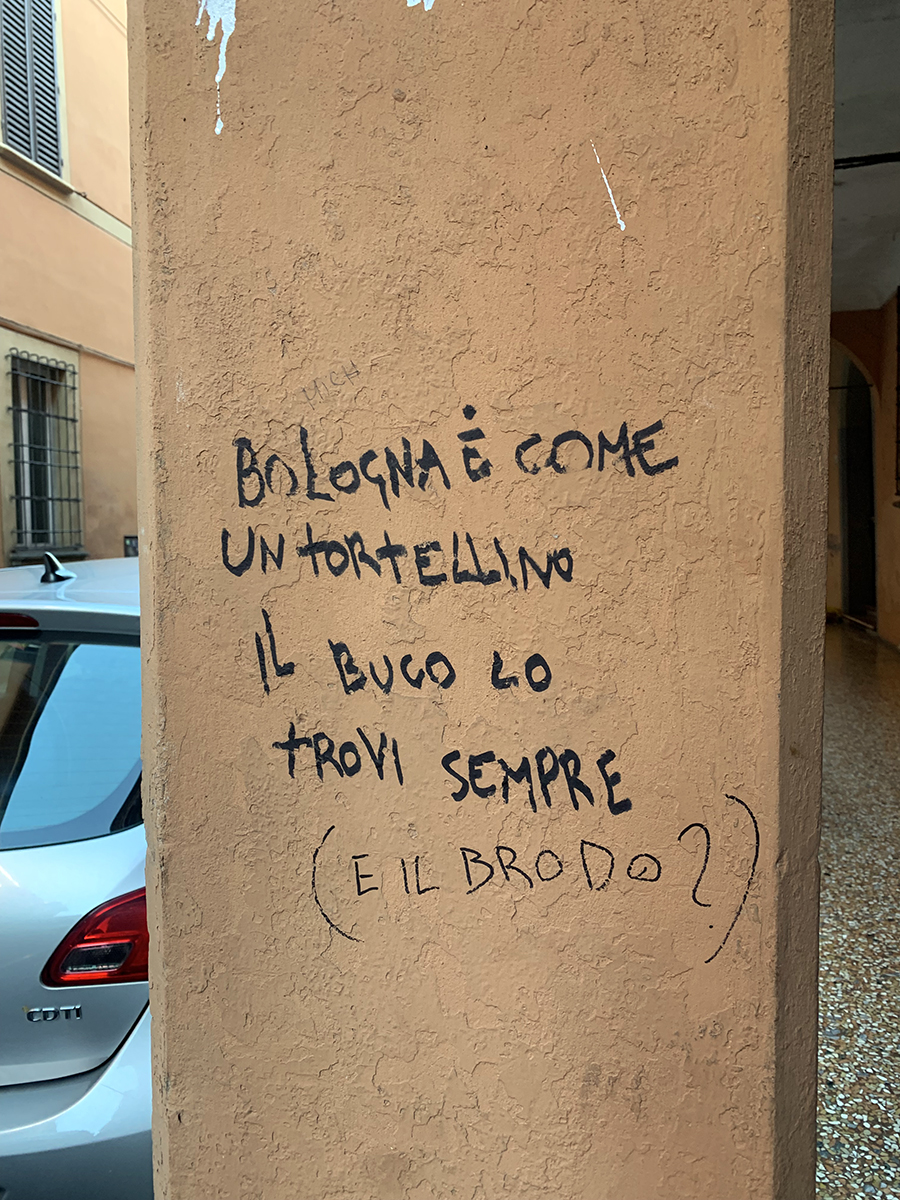 HICH
BOLOGNA È COME
UN TORTELLINO
IL BUCO LO
TROVI SEMPRE
(E IL BRODO?)
CDTI